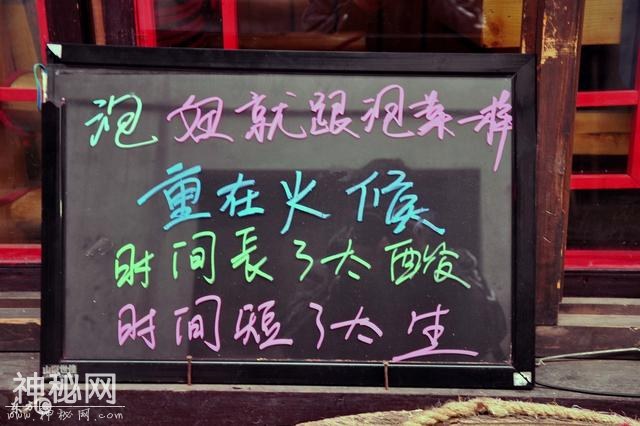 泡妞就跟泡菜一样
重在火候
时间長了太酸
时间短了太生
神秘网
www.神秘网.com